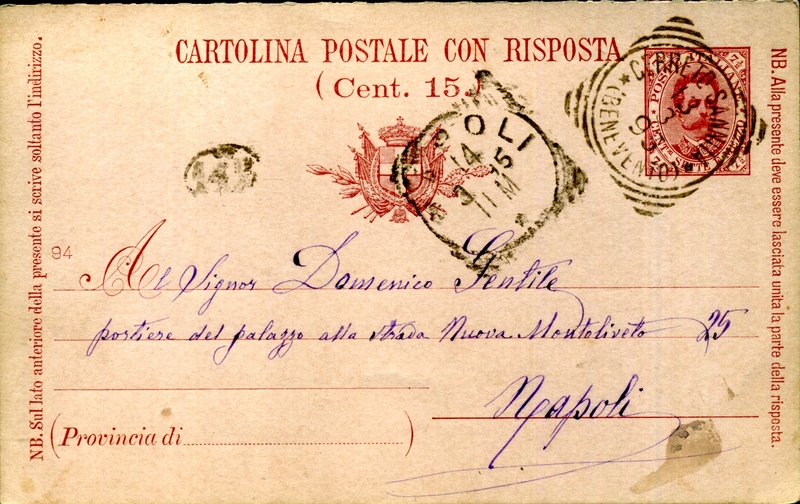 CARTOLINA POSTALE CON RISPOSTA
(Cent. 15.)
NB. Sul lato anteriore della presente si scrive soltanto l'indirizzo.
NB. Alla presente deve essere lasciata unita la parte della risposta.
POSTE ITALIANE
(BENEVENTO)
NAPOLI
14
3 95
11 M
94
Al Signor Domenico Gentile
portiere del palazzo alla strada Nuova Montoliveto 25
Napoli
(Provincia di )